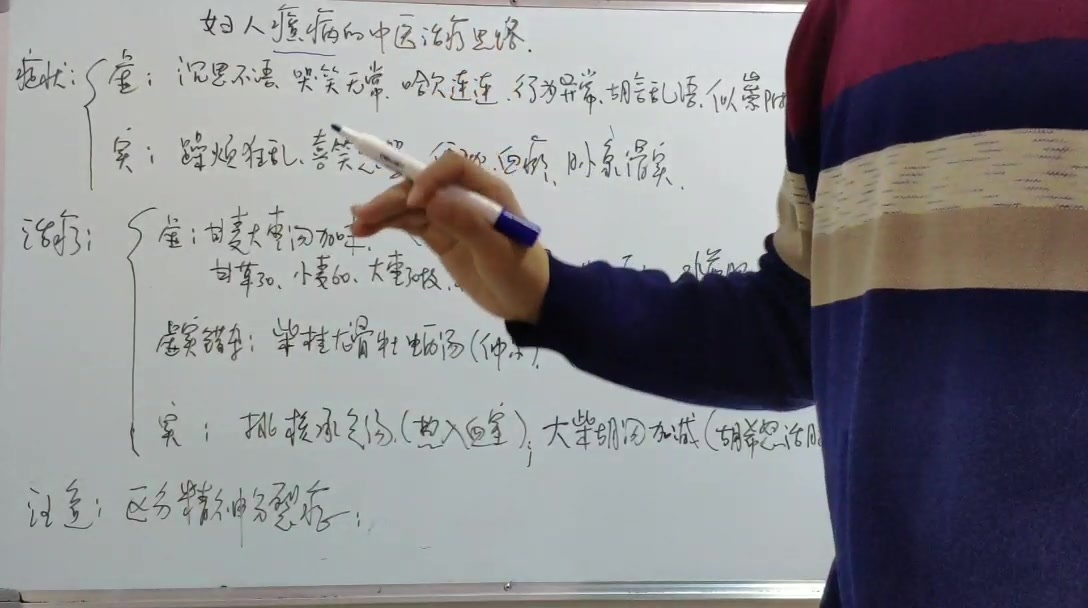 妇人癔病的中医治疗思路.
症状:{虚:沉思不语、哭笑无常、哈欠连连、行为异常、胡言乱语、似祟
实:躁烦狂乱、喜笑 面颧、脉系滑实.
治疗:{虚:甘麦大枣汤加味
甘草30、小麦60、大枣30枚、
虚实错杂:柴桂龙骨牡蛎汤(仲
实:桃核承气汤.(热入血室);大柴胡汤加减(胡希恕
注意:区分精神分裂症;